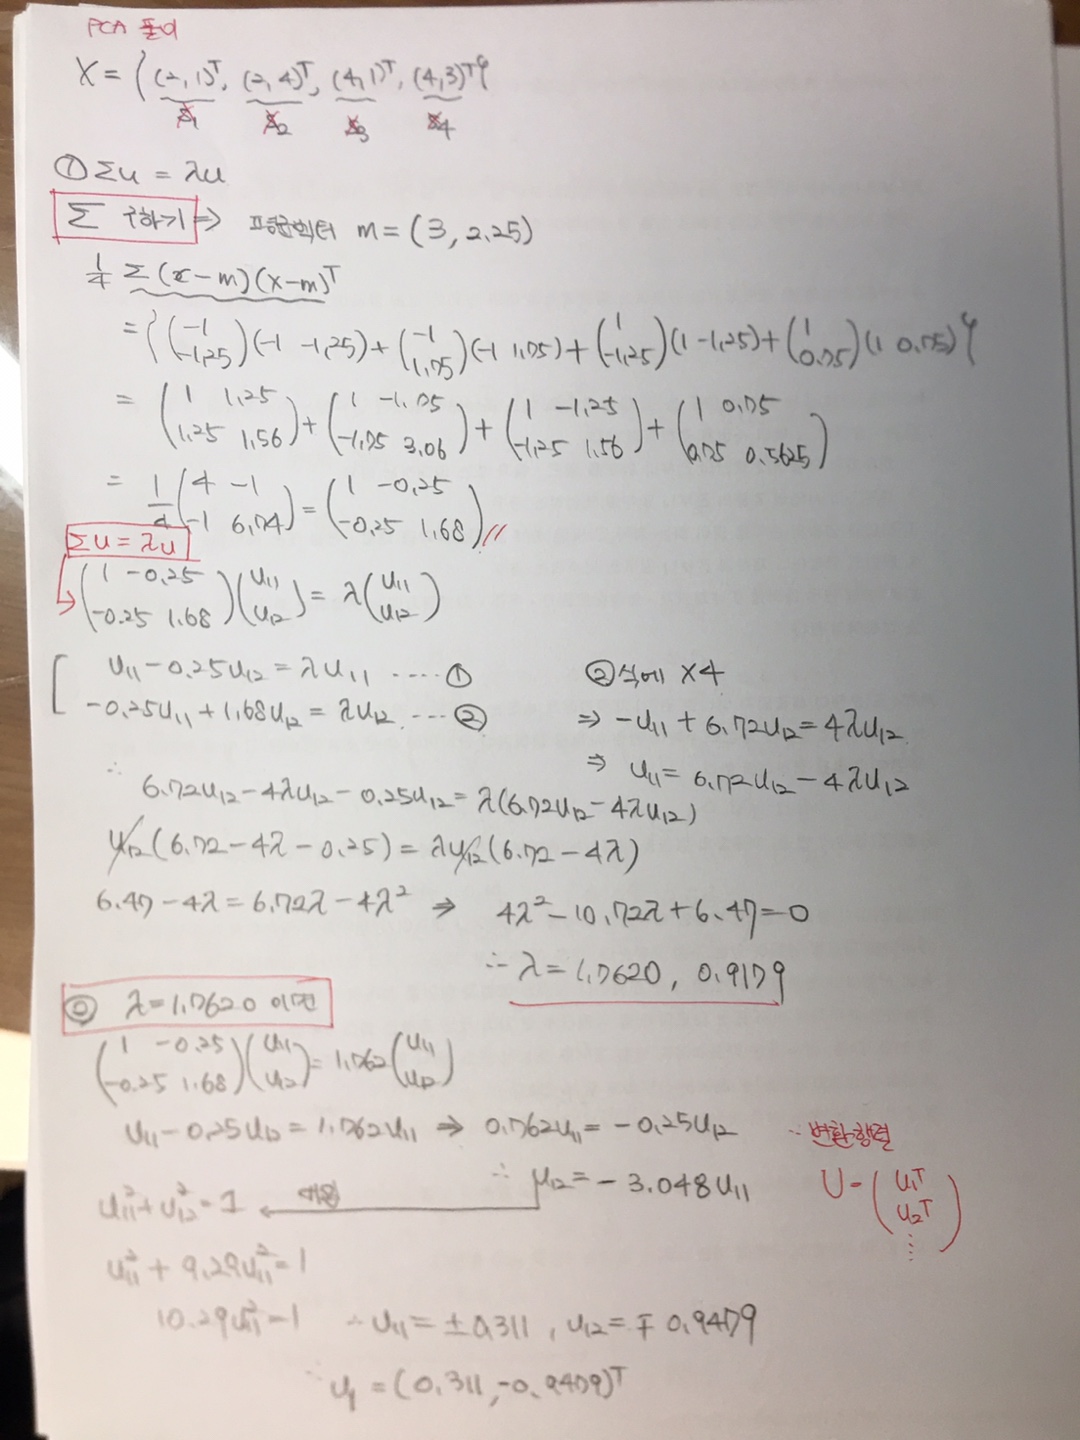 PCA 풀이
X = {(2,1)ᵀ, (2,4)ᵀ, (4,1)ᵀ, (4,3)ᵀ}
x₁ x₂ x₃ x₄
① Σu = λu
Σ 구하기 ⇒ 평균벡터 m = (3, 2.25)
1/4 Σ(x-m)(x-m)ᵀ
= {(-1 / -1.25)(-1 -1.25) + (-1 / 1.75)(-1 1.75) + (1 / -1.25)(1 -1.25) + (1 / 0.75)(1 0.75)}
= (1 1.25 / 1.25 1.56) + (1 -1.75 / -1.75 3.06) + (1 -1.25 / -1.25 1.56) + (1 0.75 / 0.75 0.5625)
= 1/4 (4 -1 / -1 6.74) = (1 -0.25 / -0.25 1.68) //
Σu = λu
(1 -0.25 / -0.25 1.68)(u₁₁ / u₁₂) = λ(u₁₁ / u₁₂)
u₁₁ - 0.25u₁₂ = λu₁₁ ---- ①
-0.25u₁₁ + 1.68u₁₂ = λu₁₂ --- ②
②식에 ×4
⇒ -u₁₁ + 6.72u₁₂ = 4λu₁₂
⇒ u₁₁ = 6.72u₁₂ - 4λu₁₂
∴ 6.72u₁₂ - 4λu₁₂ - 0.25u₁₂ = λ(6.72u₁₂ - 4λu₁₂)
u₁₂(6.72 - 4λ - 0.25) = λu₁₂(6.72 - 4λ)
6.47 - 4λ = 6.72λ - 4λ² ⇒ 4λ² - 10.72λ + 6.47 = 0
∴ λ = 1.7620, 0.9179
λ = 1.7620 이면
(1 -0.25 / -0.25 1.68)(u₁₁ / u₁₂) = 1.762(u₁₁ / u₁₂)
u₁₁ - 0.25u₁₂ = 1.762u₁₁ ⇒ 0.762u₁₁ = -0.25u₁₂
∴ μ₁₂ = -3.048u₁₁
u₁₁² + u₁₂² = 1 ← 대입
u₁₁² + 9.29u₁₁² = 1
10.29u₁₁² = 1 ∴ u₁₁ = ±0.311, u₁₂ = ∓0.9479
∴ u₁ = (0.311, -0.9479)ᵀ
∴ 변환행렬
U = (u₁ᵀ / u₂ᵀ / ⋮)